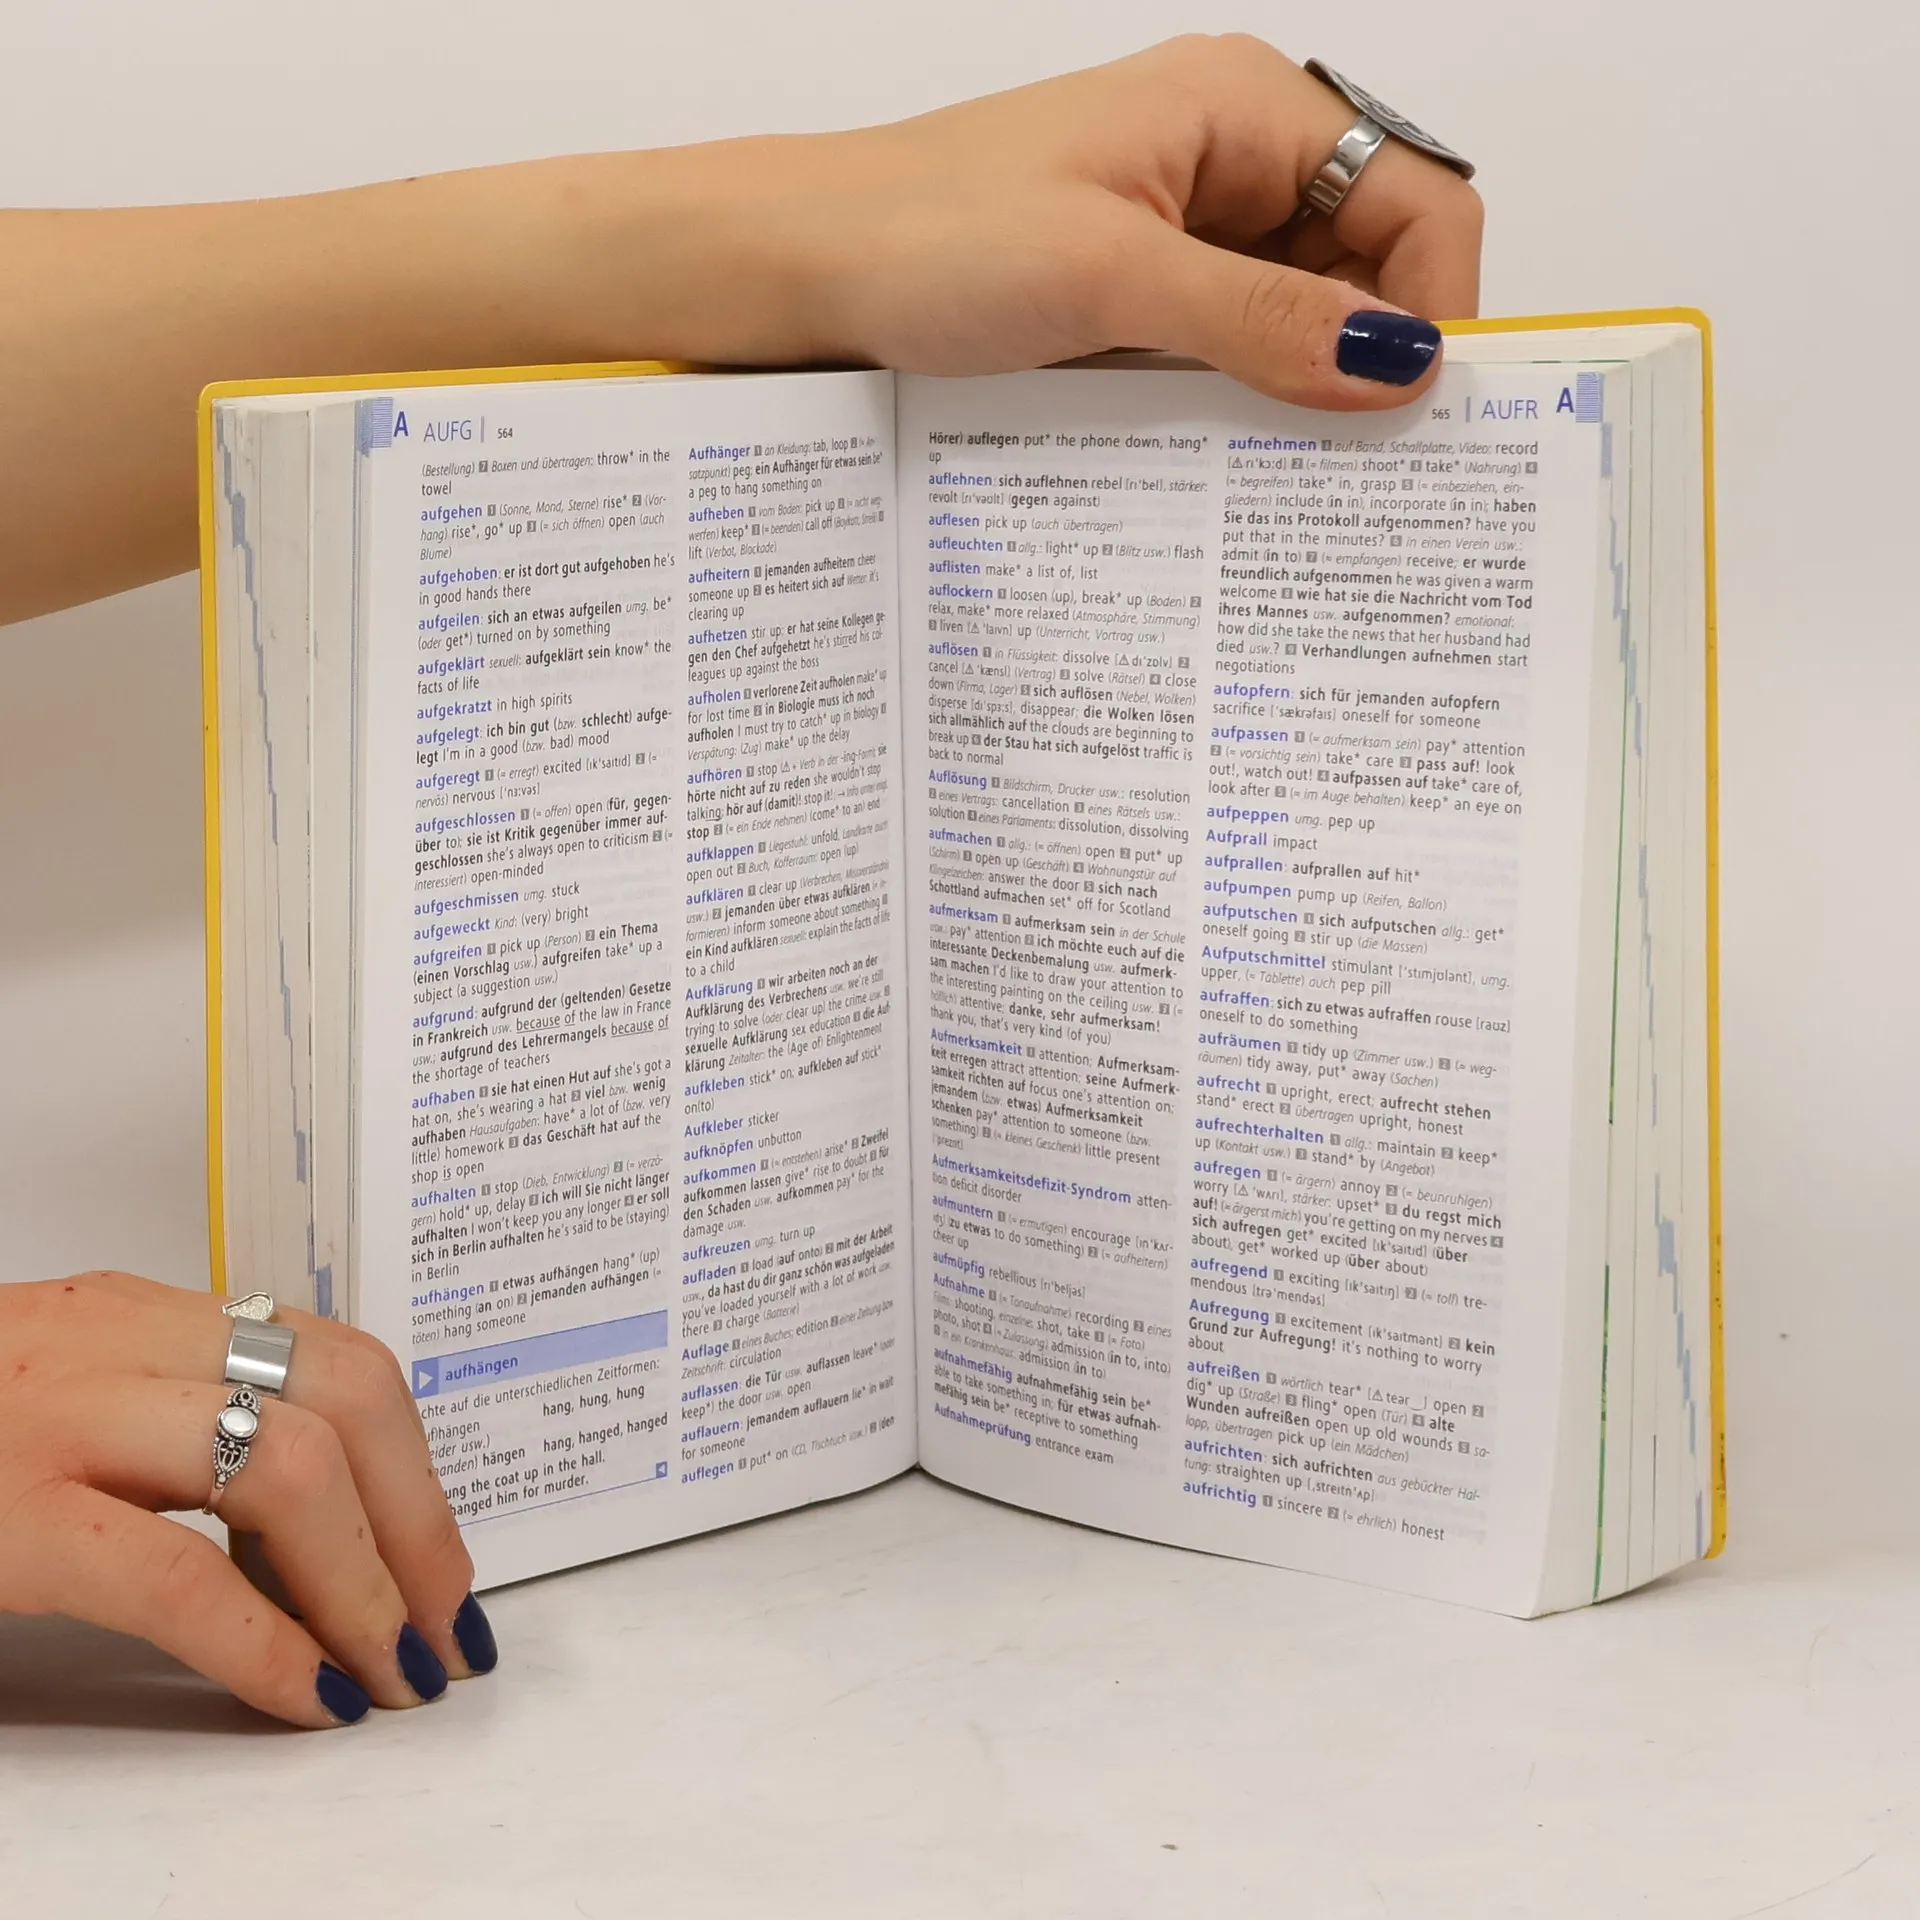 A AUFG | 564
(Bestellung) 7 Boxen und übertragen: throw* in the
towel
aufgehen 1 (Sonne, Mond, Sterne) rise* 2 (Vor-
hang) rise*, go* up 3 (= sich öffnen) open (auch
Blume)
aufgehoben: er ist dort gut aufgehoben he's
in good hands there
aufgeilen: sich an etwas aufgeilen umg. be*
(oder get*) turned on by something
aufgeklärt sexuell: aufgeklärt sein know* the
facts of life
aufgekratzt in high spirits
aufgelegt: ich bin gut (bzw. schlecht) aufge-
legt I'm in a good (bzw. bad) mood
aufgeregt 1 (= erregt) excited [ɪk'saɪtɪd] 2 (=
nervös) nervous ['nɜːvəs]
aufgeschlossen 1 (= offen) open (für, gegen-
über to); sie ist Kritik gegenüber immer auf-
geschlossen she's always open to criticism 2 (=
interessiert) open-minded
aufgeschmissen umg. stuck
aufgeweckt Kind: (very) bright
aufgreifen 1 pick up (Person) 2 ein Thema
(einen Vorschlag usw.) aufgreifen take* up a
subject (a suggestion usw.)
aufgrund: aufgrund der (geltenden) Gesetze
in Frankreich usw. because of the law in France
usw.; aufgrund des Lehrermangels because of
the shortage of teachers
aufhaben 1 sie hat einen Hut auf she's got a
hat on, she's wearing a hat 2 viel bzw. wenig
aufhaben Hausaufgaben: have* a lot of (bzw. very
little) homework 3 das Geschäft hat auf the
shop is open
aufhalten 1 stop (Dieb, Entwicklung) 2 (= verzö-
gern) hold* up, delay 3 ich will Sie nicht länger
aufhalten I won't keep you any longer 4 er soll
sich in Berlin aufhalten he's said to be (staying)
in Berlin
aufhängen 1 etwas aufhängen hang* (up)
something (an on) 2 jemanden aufhängen (=
töten) hang someone
aufhängen
chte auf die unterschiedlichen Zeitformen:
hängen hang, hung, hung
eider usw.)
anden) hängen hang, hanged, hanged
ung the coat up in the hall.
hanged him for murder.
Aufhänger 1 an Kleidung: tab, loop 2 (= An-
satzpunkt) peg; ein Aufhänger für etwas sein be*
a peg to hang something on
aufheben 1 vom Boden: pick up 2 (= nicht weg-
werfen) keep* 3 (= beenden) call off (Boykott, Streik) 4
lift (Verbot, Blockade)
aufheitern 1 jemanden aufheitern cheer
someone up 2 es heitert sich auf Wetter: it's
clearing up
aufhetzen stir up; er hat seine Kollegen ge-
gen den Chef aufgehetzt he's stirred his col-
leagues up against the boss
aufholen 1 verlorene Zeit aufholen make* up
for lost time 2 in Biologie muss ich noch
aufholen I must try to catch* up in biology 3
Verspätung: (Zug) make* up the delay
aufhören 1 stop (⚠ + Verb in der -ing-Form); sie
hörte nicht auf zu reden she wouldn't stop
talking; hör auf (damit)! stop it!; → Info unter
stop 2 (= ein Ende nehmen) (come* to an) end
aufklappen 1 Liegestuhl: unfold, Landkarte auch
open out 2 Buch, Kofferraum: open (up)
aufklären 1 clear up (Verbrechen, Missverständnis
usw.) 2 jemanden über etwas aufklären (= in-
formieren) inform someone about something 3
ein Kind aufklären sexuell: explain the facts of life
to a child
Aufklärung 1 wir arbeiten noch an der
Aufklärung des Verbrechens usw. we're still
trying to solve (oder clear up) the crime usw. 2
sexuelle Aufklärung sex education 3 die Auf-
klärung Zeitalter: the (Age of) Enlightenment
aufkleben stick* on; aufkleben auf stick*
on(to)
Aufkleber sticker
aufknöpfen unbutton
aufkommen 1 (= entstehen) arise* 2 Zweifel
aufkommen lassen give* rise to doubt 3 für
den Schaden usw. aufkommen pay* for the
damage usw.
aufkreuzen umg. turn up
aufladen 1 load (auf onto) 2 mit der Arbeit
usw., da hast du dir ganz schön was aufgeladen
you've loaded yourself with a lot of work usw.
there 3 charge (Batterie)
Auflage 1 eines Buches: edition 2 einer Zeitung bzw.
Zeitschrift: circulation
auflassen: die Tür usw. auflassen leave* (oder
keep*) the door usw. open
auflauern: jemandem auflauern lie* in wait
for someone
auflegen 1 put* on (CD, Tischtuch usw.) 2 (den
565 | AUFR A
Hörer) auflegen put* the phone down, hang*
up
auflehnen: sich auflehnen rebel [rɪ'bel], stärker:
revolt [rɪ'vəʊlt] (gegen against)
auflesen pick up (auch übertragen)
aufleuchten 1 allg.: light* up 2 (Blitz usw.) flash
auflisten make* a list of, list
auflockern 1 loosen (up), break* up (Boden) 2
relax, make* more relaxed (Atmosphäre, Stimmung)
3 liven [⚠ 'laɪvn] up (Unterricht, Vortrag usw.)
auflösen 1 in Flüssigkeit: dissolve [⚠ dɪ'zɒlv] 2
cancel [⚠ 'kænsl] (Vertrag) 3 solve (Rätsel) 4 close
down (Firma, Lager) 5 sich auflösen (Nebel, Wolken)
disperse [dɪ'spɜːs], disappear; die Wolken lösen
sich allmählich auf the clouds are beginning to
break up 6 der Stau hat sich aufgelöst traffic is
back to normal
Auflösung 1 Bildschirm, Drucker usw.: resolution
2 eines Vertrags: cancellation 3 eines Rätsels usw.:
solution 4 eines Parlaments: dissolution, dissolving
aufmachen 1 allg.: (= öffnen) open 2 put* up
(Schirm) 3 open up (Geschäft) 4 Wohnungstür auf
Klingelzeichen: answer the door 5 sich nach
Schottland aufmachen set* off for Scotland
aufmerksam 1 aufmerksam sein in der Schule
usw.: pay* attention 2 ich möchte euch auf die
interessante Deckenbemalung usw. aufmerk-
sam machen I'd like to draw your attention to
the interesting painting on the ceiling usw. 3 (=
höflich) attentive; danke, sehr aufmerksam!
thank you, that's very kind (of you)
Aufmerksamkeit 1 attention; Aufmerksam-
keit erregen attract attention; seine Aufmerk-
samkeit richten auf focus one's attention on;
jemandem (bzw. etwas) Aufmerksamkeit
schenken pay* attention to someone (bzw.
something) 2 (= kleines Geschenk) little present
['preznt]
Aufmerksamkeitsdefizit-Syndrom atten-
tion deficit disorder
aufmuntern 1 (= ermutigen) encourage [ɪn'kʌr-
ɪdʒ] (zu etwas to do something) 2 (= aufheitern)
cheer up
aufmüpfig rebellious [rɪ'beljəs]
Aufnahme 1 (= Tonaufnahme) recording 2 eines
Films: shooting, einzelne: shot, take 3 (= Foto)
photo, shot 4 (= Zulassung) admission (in to, into)
5 in ein Krankenhaus: admission (in to)
aufnahmefähig aufnahmefähig sein be*
able to take something in; für etwas aufnah-
mefähig sein be* receptive to something
Aufnahmeprüfung entrance exam
aufnehmen 1 auf Band, Schallplatte, Video: record
[⚠ rɪ'kɔːd] 2 (= filmen) shoot* 3 take* (Nahrung) 4
(= begreifen) take* in, grasp 5 (= einbeziehen, ein-
gliedern) include (in in), incorporate (in in); haben
Sie das ins Protokoll aufgenommen? have you
put that in the minutes? 6 in einen Verein usw.:
admit (in to) 7 (= empfangen) receive; er wurde
freundlich aufgenommen he was given a warm
welcome 8 wie hat sie die Nachricht vom Tod
ihres Mannes usw. aufgenommen? emotional:
how did she take the news that her husband had
died usw.? 9 Verhandlungen aufnehmen start
negotiations
aufopfern: sich für jemanden aufopfern
sacrifice ['sækrəfaɪs] oneself for someone
aufpassen 1 (= aufmerksam sein) pay* attention
2 (= vorsichtig sein) take* care 3 pass auf! look
out!, watch out! 4 aufpassen auf take* care of,
look after 5 (= im Auge behalten) keep* an eye on
aufpeppen umg. pep up
Aufprall impact
aufprallen: aufprallen auf hit*
aufpumpen pump up (Reifen, Ballon)
aufputschen 1 sich aufputschen allg.: get*
oneself going 2 stir up (die Massen)
Aufputschmittel stimulant ['stɪmjʊlənt], umg.
upper, (= Tablette) auch pep pill
aufraffen: sich zu etwas aufraffen rouse [raʊz]
oneself to do something
aufräumen 1 tidy up (Zimmer usw.) 2 (= weg-
räumen) tidy away, put* away (Sachen)
aufrecht 1 upright, erect; aufrecht stehen
stand* erect 2 übertragen upright, honest
aufrechterhalten 1 allg.: maintain 2 keep*
up (Kontakt usw.) 3 stand* by (Angebot)
aufregen 1 (= ärgern) annoy 2 (= beunruhigen)
worry [⚠ 'wʌrɪ], stärker: upset* 3 du regst mich
auf! (= ärgerst mich) you're getting on my nerves 4
sich aufregen get* excited [ɪk'saɪtɪd] (über
about), get* worked up (über about)
aufregend 1 exciting [ɪk'saɪtɪŋ] 2 (= toll) tre-
mendous [trə'mendəs]
Aufregung 1 excitement [ɪk'saɪtmənt] 2 kein
Grund zur Aufregung! it's nothing to worry
about
aufreißen 1 wörtlich tear* [⚠ teər] open 2
dig* up (Straße) 3 fling* open (Tür) 4 alte
Wunden aufreißen open up old wounds 5 sa-
lopp, übertragen pick up (ein Mädchen)
aufrichten: sich aufrichten aus gebückter Hal-
tung: straighten up [ˌstreɪtn'ʌp]
aufrichtig 1 sincere 2 (= ehrlich) honest